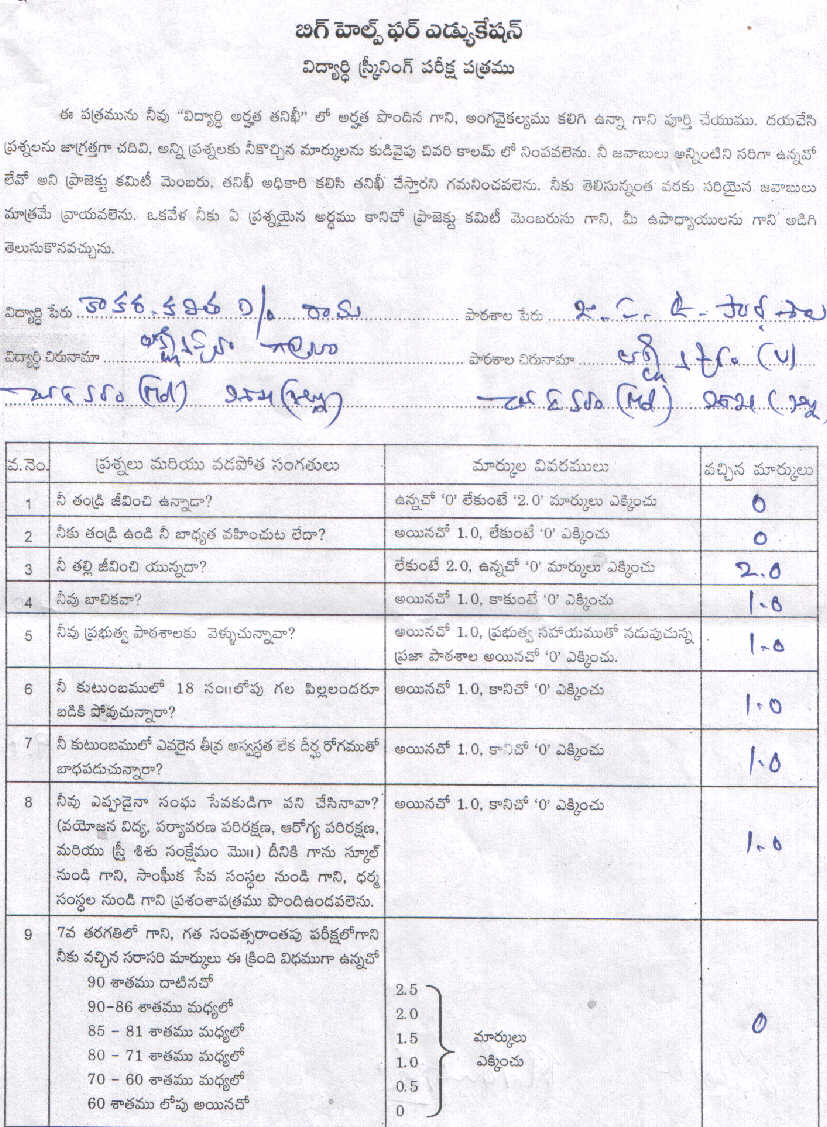 బిగ్ హెల్ప్ ఫర్ ఎడ్యుకేషన్
విద్యార్థి స్క్రీనింగ్ పరీక్ష పత్రము
ఈ పత్రమును నీవు "విద్యార్థి అర్హత తనిఖీ" లో అర్హత పొందిన గాని, అంగవైకల్యము కలిగి ఉన్నా గాని పూర్తి చేయుము. దయచేసి
ప్రశ్నలను జాగ్రత్తగా చదివి, అన్ని ప్రశ్నలకు నీకొచ్చిన మార్కులను కుడివైపు చివరి కాలమ్ లో నింపవలెను. నీ జవాబులు అన్నింటిని సరిగా ఉన్నవో
లేవో అని ప్రాజెక్టు కమిటీ మెంబరు, తనిఖీ అధికారి కలిసి తనిఖీ చేస్తారని గమనించవలెను. నీకు తెలిసున్నంత వరకు సరియైన జవాబులు
మాత్రమే వ్రాయవలెను. ఒకవేళ నీకు ఏ ప్రశ్నయైన అర్థము కానిచో ప్రాజెక్టు కమిటీ మెంబరును గాని, మీ ఉపాధ్యాయులను గాని అడిగి
తెలుసుకొనవచ్చును.
విద్యార్థి పేరు కాకర. కవిత D/o రాము పాఠశాల పేరు
విద్యార్థి చిరునామా పాఠశాల చిరునామా (V)
(Md) (Md)
వ.నెం. ప్రశ్నలు మరియు వడపోత సంగతులు మార్కుల వివరములు వచ్చిన మార్కులు
1 నీ తండ్రి జీవించి ఉన్నాడా? ఉన్నచో '0' లేకుంటే '2.0' మార్కులు ఎక్కించు 0
2 నీకు తండ్రి ఉండి నీ బాధ్యత వహించుట లేదా? అయినచో 1.0, లేకుంటే '0' ఎక్కించు 0
3 నీ తల్లి జీవించి యున్నదా? లేకుంటే 2.0, ఉన్నచో '0' మార్కులు ఎక్కించు 2.0
4 నీవు బాలికవా? అయినచో 1.0, కాకుంటే '0' ఎక్కించు 1.0
5 నీవు ప్రభుత్వ పాఠశాలకు వెళ్ళుచున్నావా? అయినచో 1.0, ప్రభుత్వ సహాయముతో నడుపుచున్న 1.0
ప్రజా పాఠశాల అయినచో '0' ఎక్కించు.
6 నీ కుటుంబములో 18 సం॥లోపు గల పిల్లలందరూ అయినచో 1.0, కానిచో '0' ఎక్కించు 1.0
బడికి పోవుచున్నారా?
7 నీ కుటుంబములో ఎవరైన తీవ్ర అస్వస్థత లేక దీర్ఘ రోగముతో అయినచో 1.0, కానిచో '0' ఎక్కించు 1.0
బాధపడుచున్నారా?
8 నీవు ఎప్పుడైనా సంఘ సేవకుడిగా పని చేసినావా? అయినచో 1.0, కానిచో '0' ఎక్కించు 1.0
(వయోజన విద్య, పర్యావరణ పరిరక్షణ, ఆరోగ్య పరిరక్షణ,
మరియు స్త్రీ శిశు సంక్షేమం మొ॥) దీనికి గాను స్కూల్
నుండి గాని, సాంఘిక సేవ సంస్థల నుండి గాని, ధర్మ
సంస్థల నుండి గాని ప్రశంశాపత్రము పొందిఉండవలెను.
9 7వ తరగతిలో గాని, గత సంవత్సరాంతపు పరీక్షలోగాని
నీకు వచ్చిన సరాసరి మార్కులు ఈ క్రింది విధముగా ఉన్నచో
90 శాతము దాటినచో 2.5
90-86 శాతము మధ్యలో 2.0
85 - 81 శాతము మధ్యలో 1.5 మార్కులు 0
80 - 71 శాతము మధ్యలో 1.0 ఎక్కించు
70 - 60 శాతము మధ్యలో 0.5
60 శాతము లోపు అయినచో 0